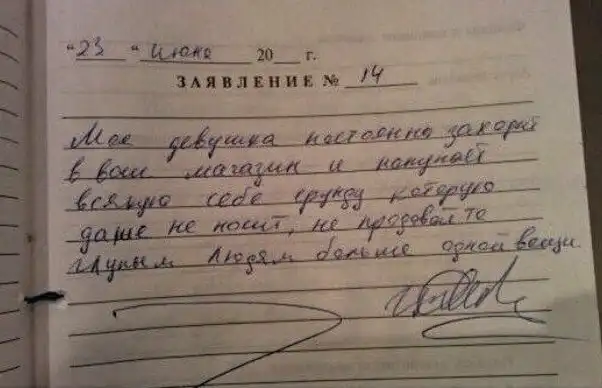 "23" Июня 20 г.
ЗАЯВЛЕНИЕ № 14
Моя девушка постоенно заходит
в ваш магазин и покупает
всякую себе ерунду которую
даже не носит, не продавайте
глупым людям больше одной вещи